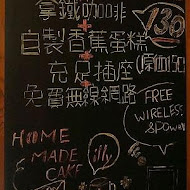 拿鐵咖啡
+
自製香蕉蛋糕
+
充足插座
免費無線網路
130
原價150
FREE
WIRELESS
&POWER
HOME
MADE
CAKE
illy